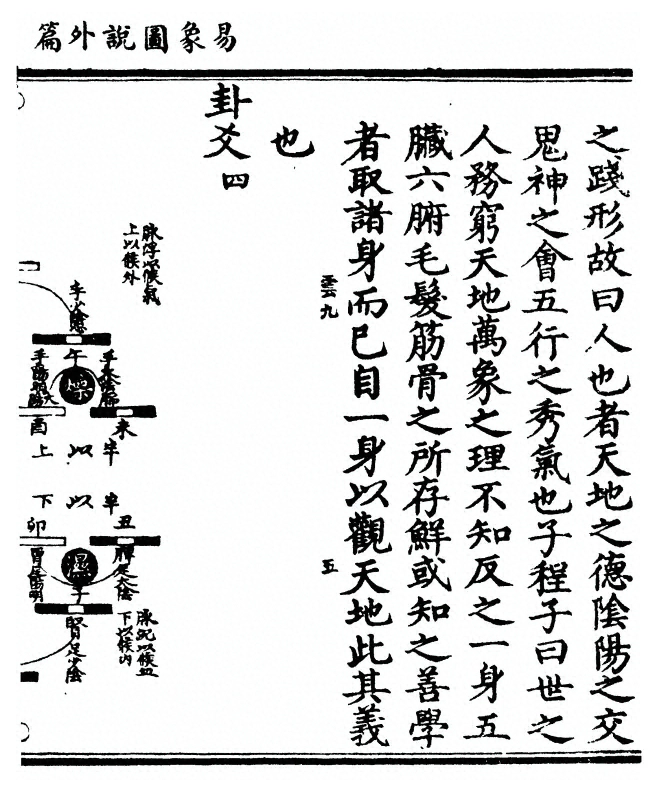 易象圖說外篇
之踐形故曰人也者天地之德陰陽之交
鬼神之會五行之秀氣也子程子曰世之
人務窮天地萬象之理不知反之一身五
臟六腑毛髮筋骨之所存鮮或知之善學
者取諸身而已自一身以觀天地此其義
也
雲九
五
卦爻四
脉浮以候氣
上以候外
手少陰
午
手太陰肺
手陽明大
未
酉
上以
下以
丑
卯
脾足太陰
胃足陽明
子
腎足少陰
脉沉以候血
下以候内